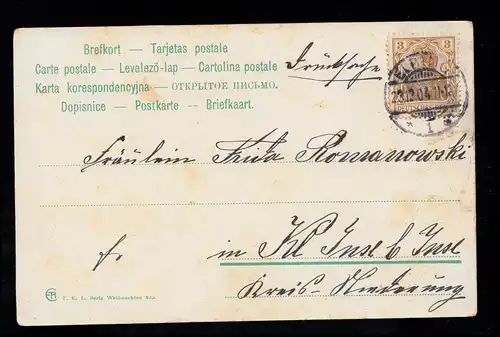 Brefkort — Tarjetas postale
Carte postale — Levelező-lap — Cartolina postale
Karta korespondencyjna — ОТКРЫТОЕ ПИСЬМО.
Dopisnice — Postkarte — Briefkaart.
Drucksache
3 3
23.12.04
1
Fräulein Frida Romanowski
in Kl Inse b Inse
Kreis Niederung
E. R. L. Serie Weihnachten